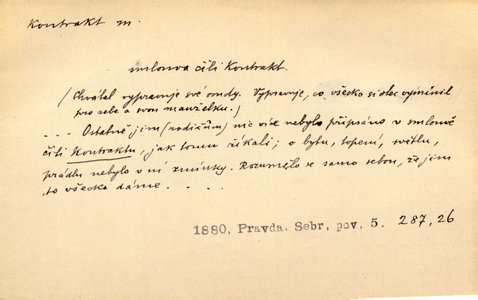 Kontrakt m.
smlouva čili Kontrakt.
(Chvátal vypravuje své osudy. Vypravuje, co všecko si otec vyminil
pro sebe a svou manželku.)
. . . Ostatně jim (rodičům) nic více nebylo připsáno v smlouvě
čili Kontraktu, jak tomu říkali; o bytu, topení, světlu,
prádlu nebylo v ní zmínky. Rozumělo se samo sebou, že jim
to všecko dáme . . . .
1880, Pravda. Sebr, pov. 5. 287, 26